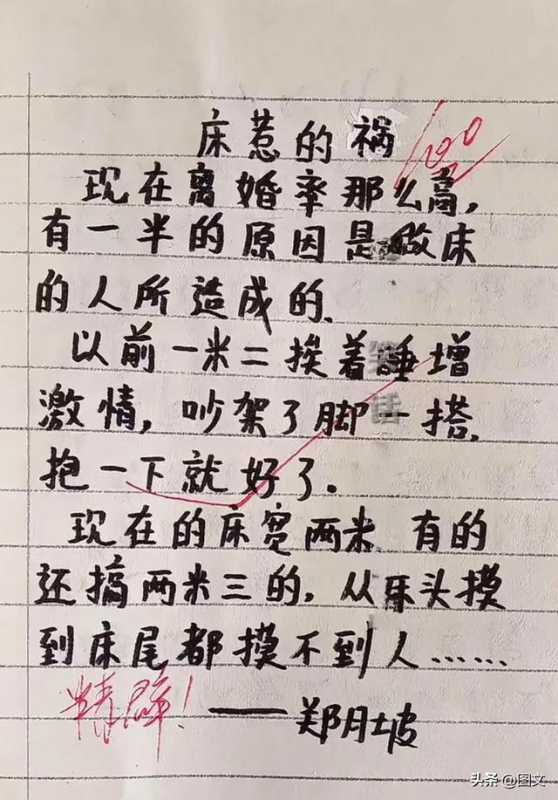 床惹的祸
100
现在离婚率那么高,
有一半的原因是做床
的人所造成的.
以前一米二挨着睡增
激情,吵架了脚一搭.
抱一下就好了.
现在的床宽两米 有的
还搞两米三的,从床头摸
到床尾都摸不到人……
精辟!
——郑月坡
头条 @图文